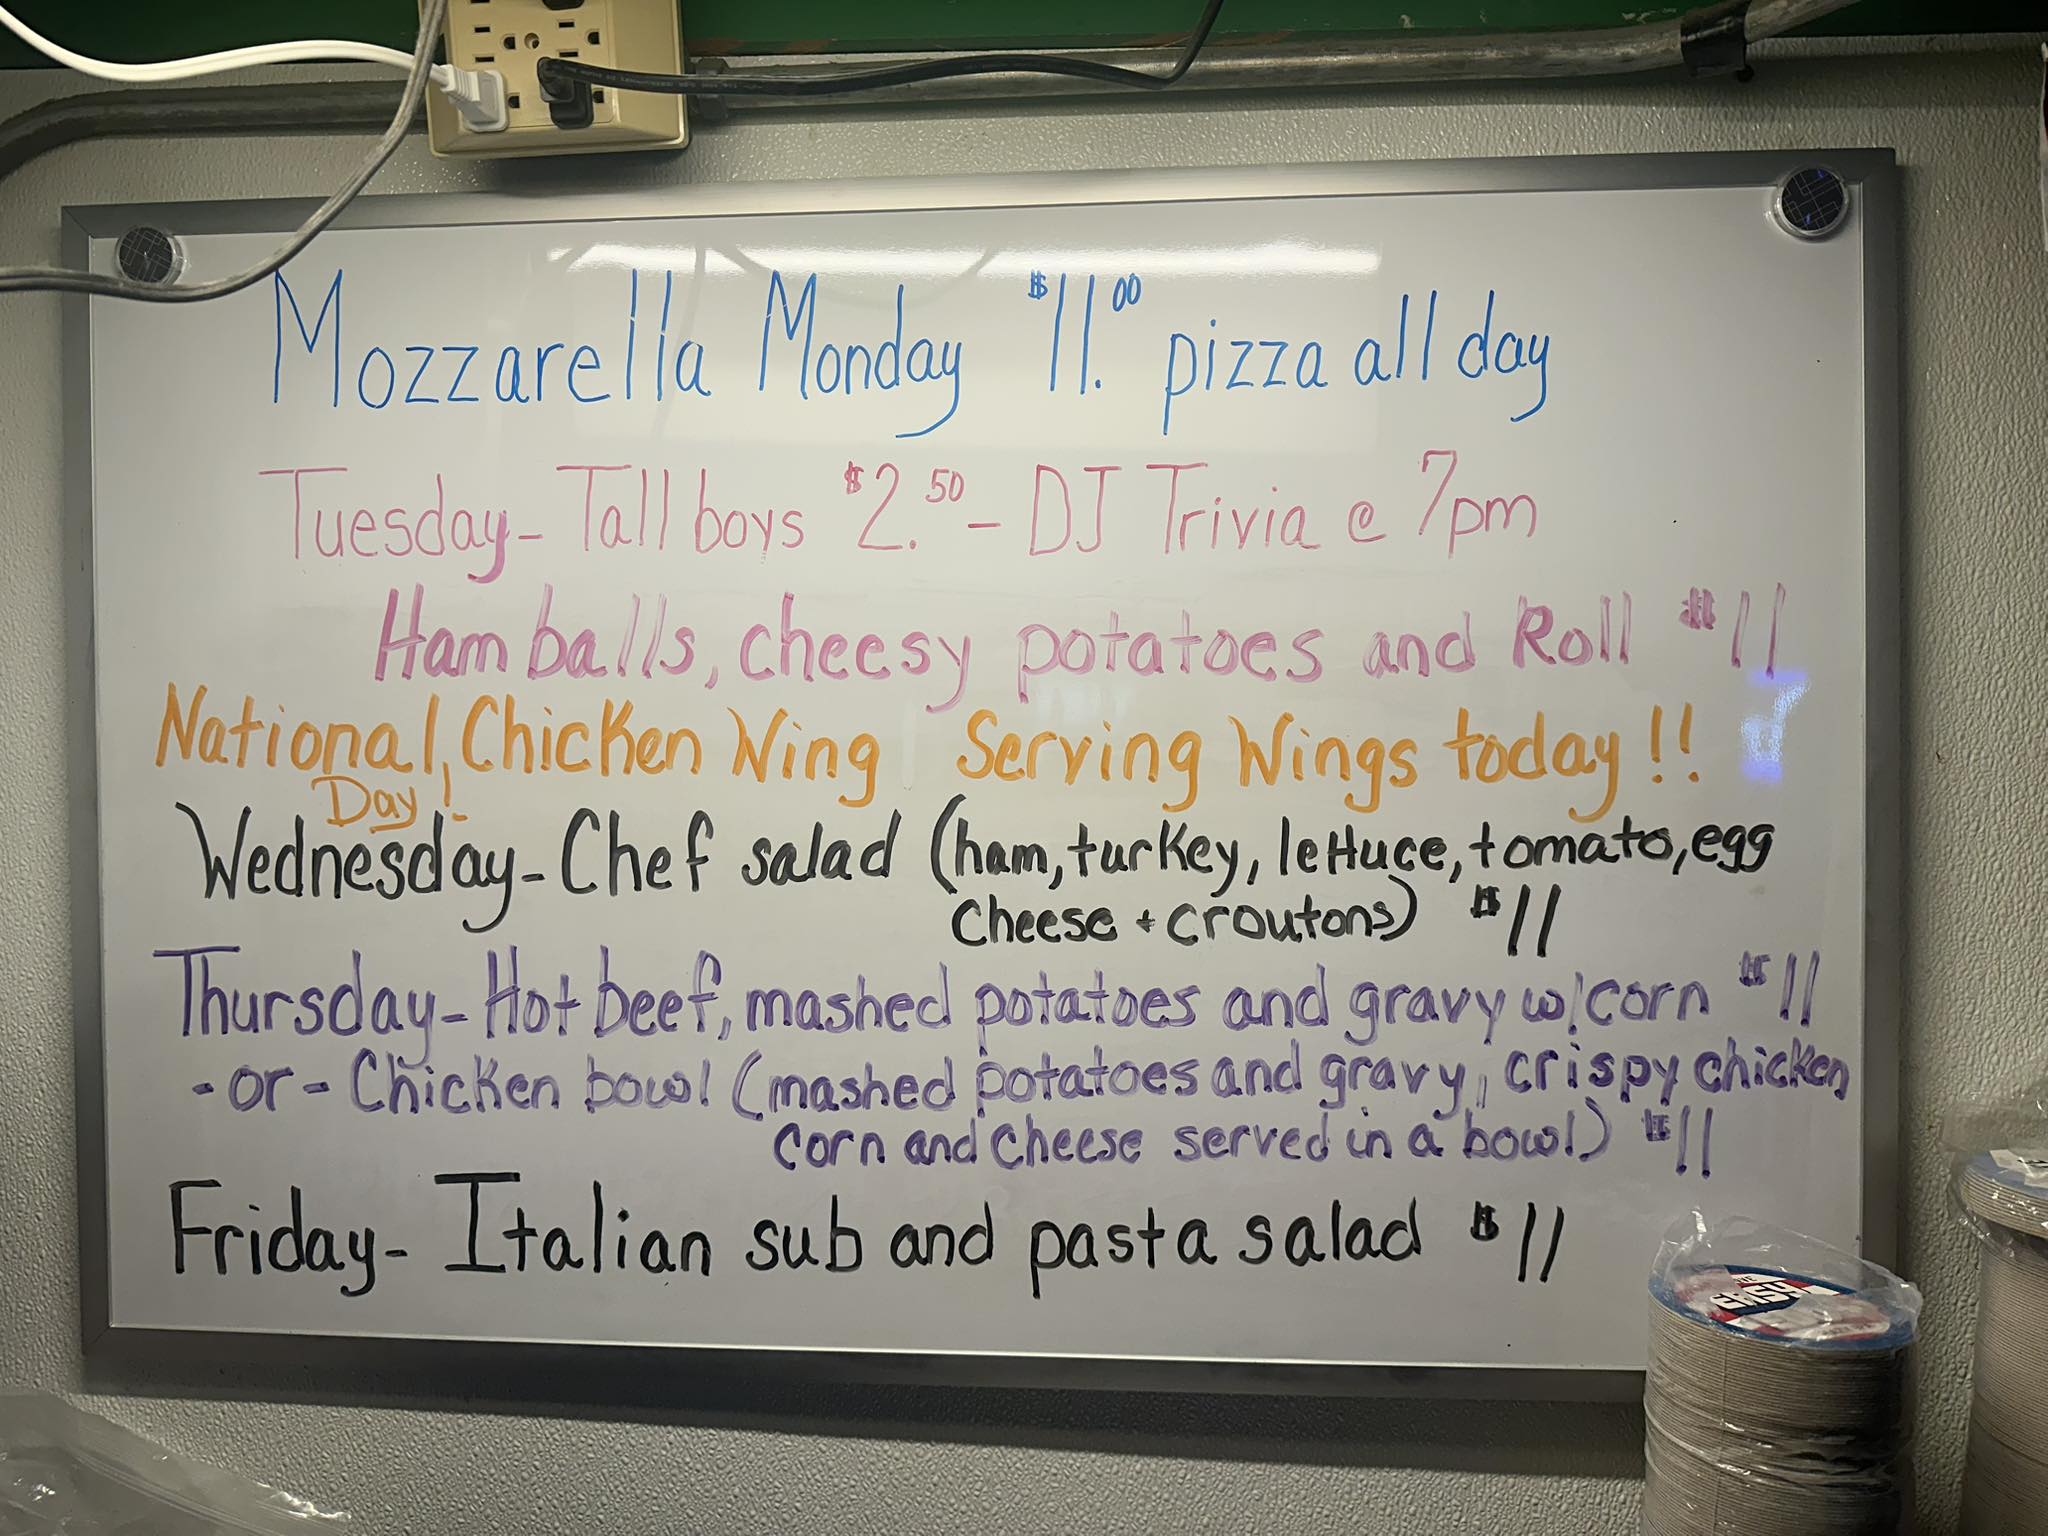 Mozzarella Monday $11.00 pizza all day
Tuesday- Tall boys $2.50 - DJ Trivia @ 7pm
Ham balls, cheesy potatoes and Roll $11
National Chicken Wing Serving Wings today!!
Day!
Wednesday- Chef salad (ham, turkey, lettuce, tomato, egg
cheese + croutons) $11
Thursday- Hot beef, mashed potatoes and gravy w/corn $11
-or- Chicken bowl (mashed potatoes and gravy, crispy chicken
corn and cheese served in a bowl) $11
Friday- Italian sub and pasta salad $11